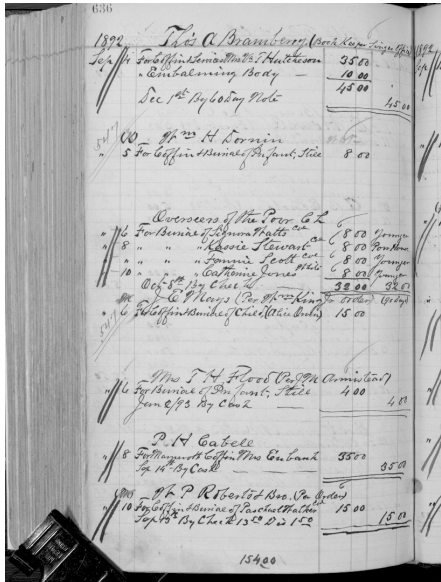 636
1892 Thos A Bramberry (Book Keeper Singer Office)
Sep 4 For Coffin & Services Mrs Va T Hutcheson 35 00
" Embalming Body — 10 00
45 00
Dec 1st By 60 Day Note 45 00
Wm H Dornin
5 For Coffin & Burial of Infant, Still 8 00
Overseers of the Poor C L
" 6 For Burial of Signora Watts Col 8 00 Younger
" 8 " " " Kassie Stewart Col 8 00 Poor House
" " " " " Fannie Scott Col 8 00 Younger
" 10 " " " Catherine Jones White 8 00 Younger
Oct 8th By Check 32 00 32 00
J E Mays (Per Wm King Jr order) (90 days)
" 6 For Coffin & Burial of Child (Alice Owen) 15 00
547
Mrs T H Flood (Per J M Armistead)
" 6 For Burial of Infant, Still 4 00
Jan 2/93 By Cash 4 00
P. H Cabell
" 8 For Coffin Mrs Eubank 35 00
Sep 14th By Cash 35 00
W P Roberts & Bro. (Per Order)
" 10 For Coffin & Burial of Paschal 15 00
By Check 13 50 Dis 1 50 15 00
154 00
1892
Sep